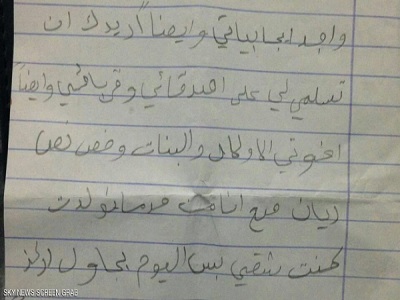 واجد ايجابياتي وايضاً اريدك ان
تسلمي لي على اصدقائي وقريباتي وايضاً
اخوتي الاولاد والبنات وخصصاً
ريان مع انا
كنت شقي بس اليوم بحاول
SKY NEWS SCREEN GRAB